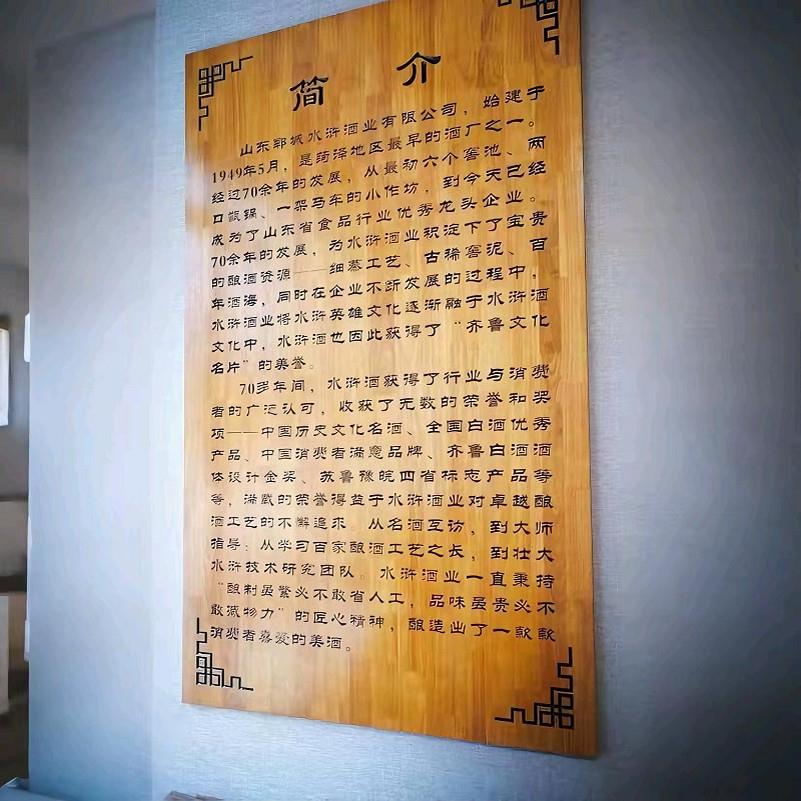 简 介
山东郓城水浒酒业有限公司，始建于
1949年5月，是菏泽地区最早的酒厂之一。
经过70余年的发展，从最初六个窖池、两
口甑锅、一架马车的小作坊，到今天已经
成为了山东省食品行业优秀龙头企业。
70余年的发展，为水浒酒业积淀下了宝贵
的酿酒资源——细蒸工艺、古稀窖泥、百
年酒海，同时在企业不断发展的过程中，
水浒酒业将水浒英雄文化逐渐融于水浒酒
文化中，水浒酒也因此获得了“齐鲁文化
名片”的美誉。
70多年间，水浒酒获得了行业与消费
者的广泛认可，收获了无数的荣誉和奖
项——中国历史文化名酒、全国白酒优秀
产品、中国消费者满意品牌、齐鲁白酒酒
体设计金奖、苏鲁豫皖四省标志产品等
等，满载的荣誉得益于水浒酒业对卓越酿
酒工艺的不懈追求。从名酒互访，到大师
指导；从学习百家酿酒工艺之长，到壮大
水浒技术研究团队。水浒酒业一直秉持
“酿制虽繁必不敢省人工，品味虽贵必不
敢减物力”的匠心精神，酿造出了一款款
消费者喜爱的美酒。